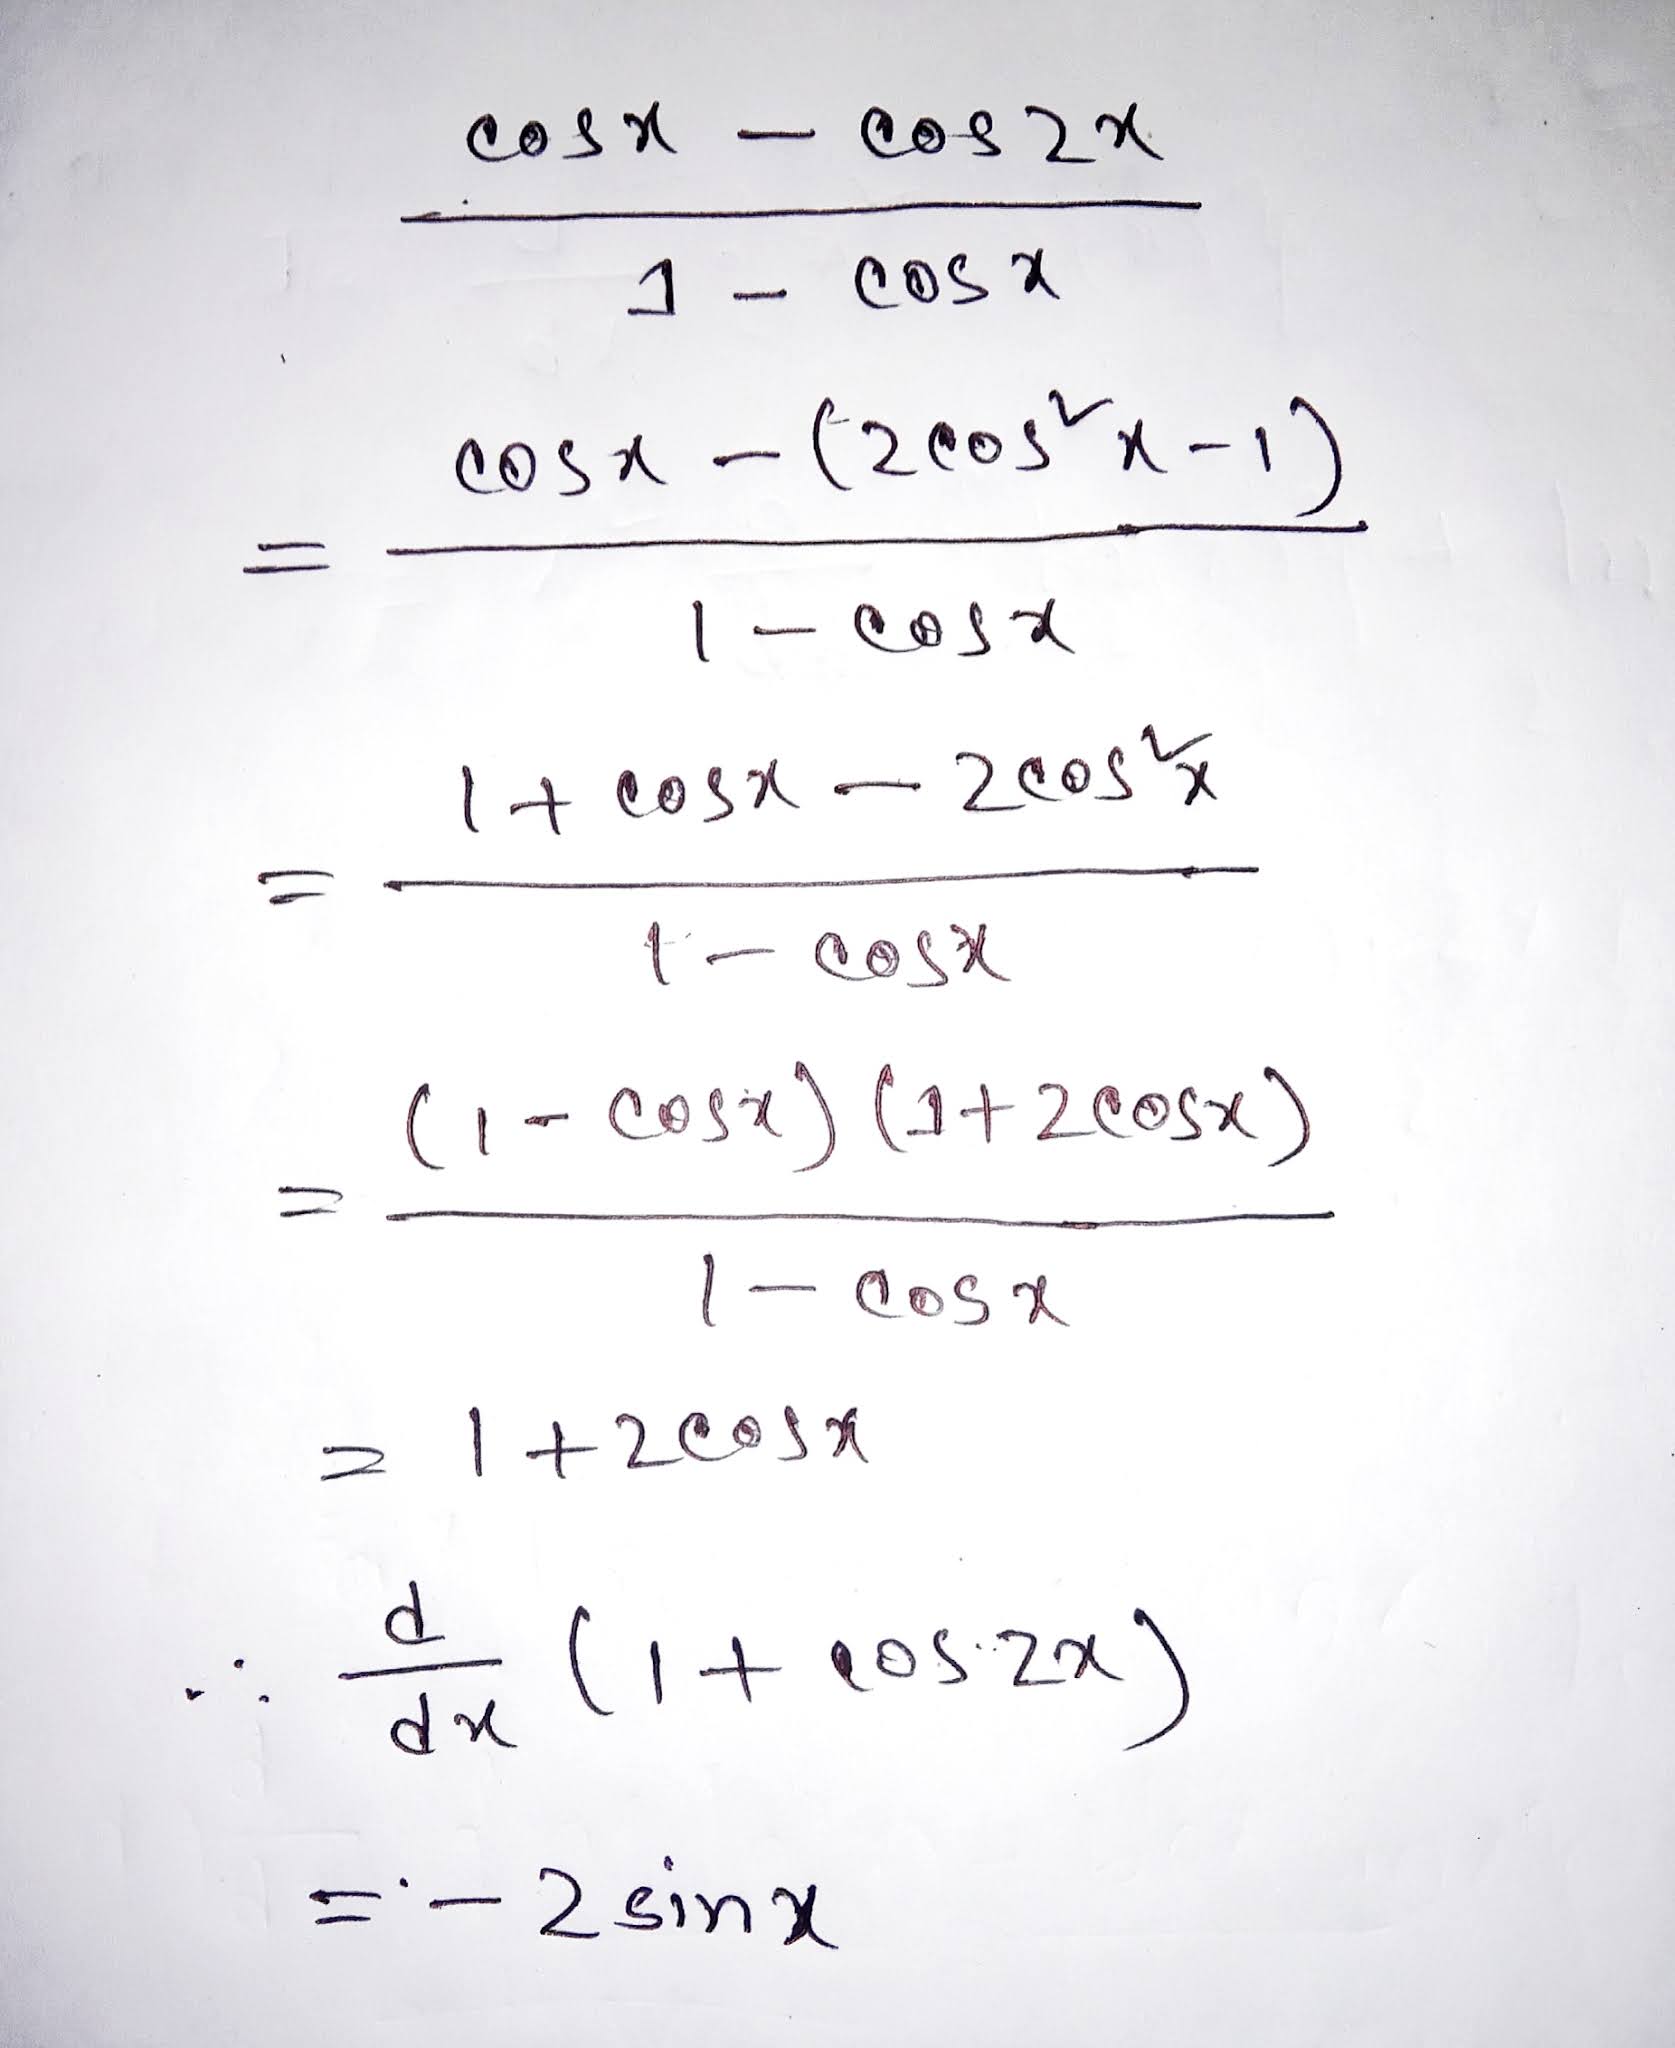 cosx - cos2x
1 - cosx
cosx - (2cos²x - 1)
=
1 - cosx
1 + cosx - 2cos²x
=
1 - cosx
(1 - cosx) (1 + 2cosx)
=
1 - cosx
= 1 + 2cosx
∴ d/dx (1 + cos2x)
= - 2 sinx